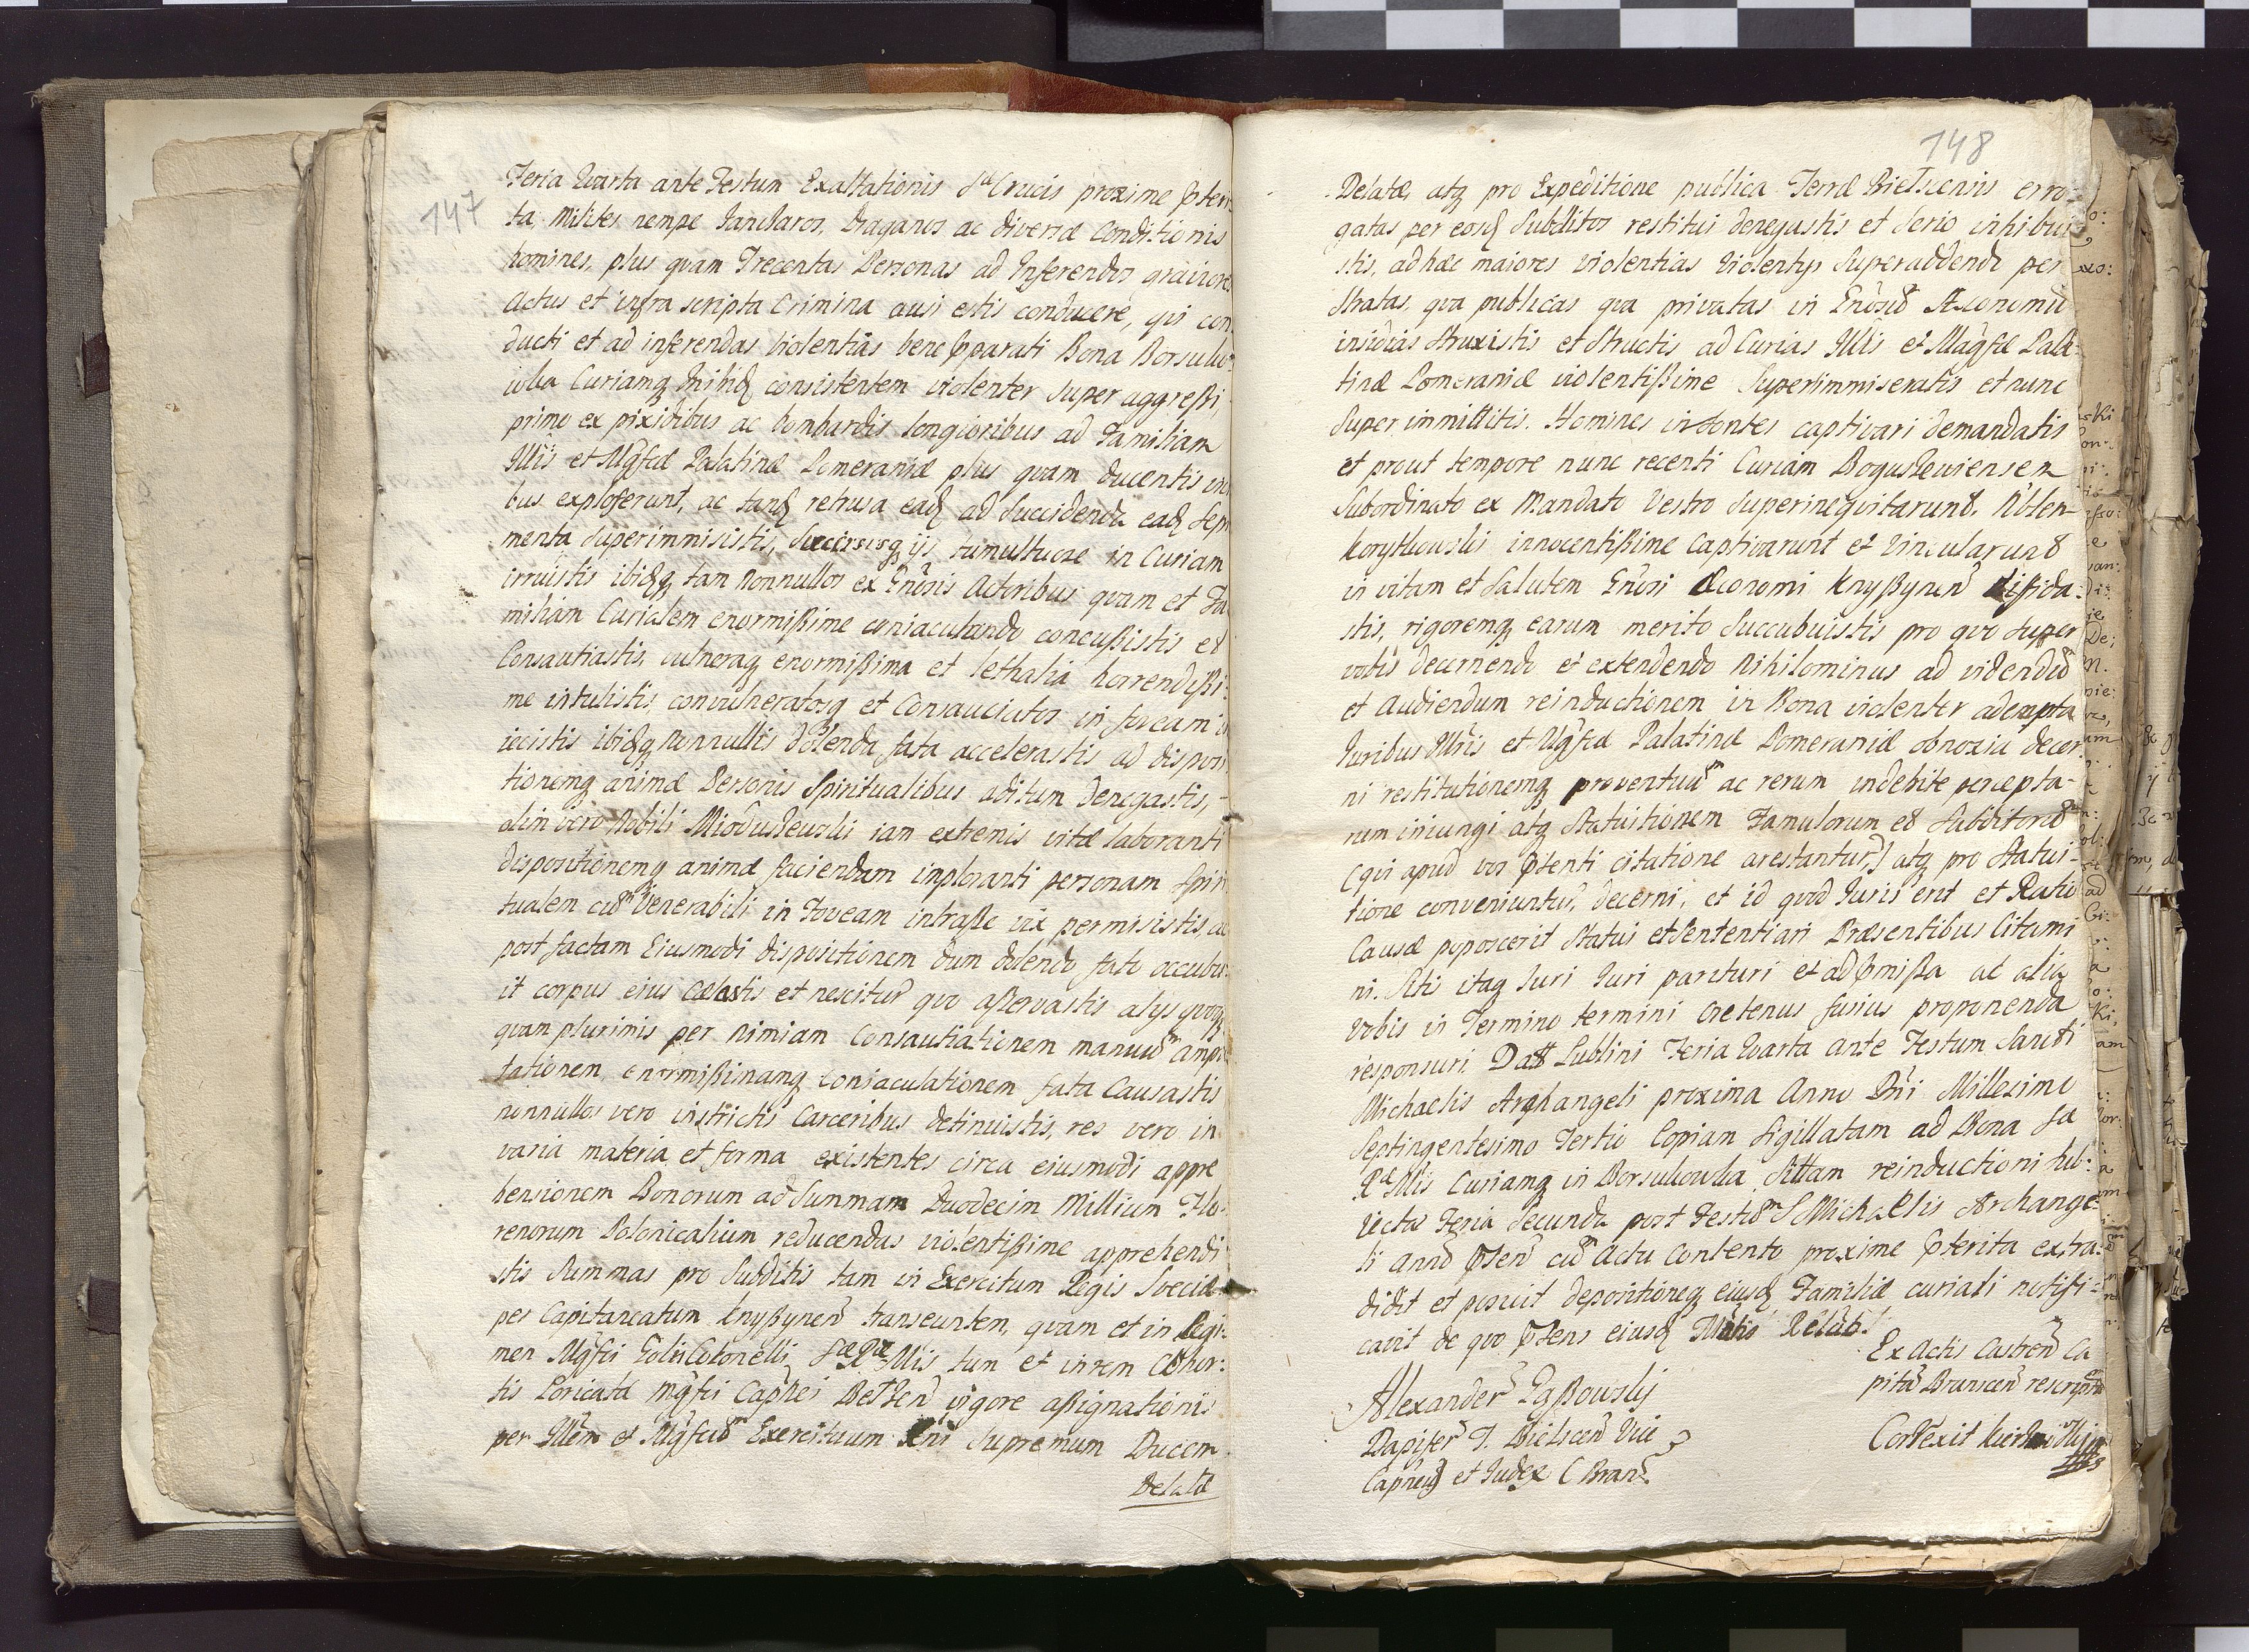 147
Feria Quarta ante Festum Exaltationis S. Crucis proxime pteri
ta, Milites nempe Janczaros, Draganos ac diversæ Conditionis
homines, plus quam Trecentas Personas ad Inferendos graviores
Actus et infra scripta Crimina ausi estis conducere, qui con
ducti et ad inferendas violentias bene pparati Bona Borsuko
wka Curiamq consistentem violenter super aggreßi,
primo ex pixidibus ac bombardis longioribus ad Familiam
Illis et Mgfcæ Palatinæ Pomeraniæ plus quam ducentis
bus exploserunt, ac tandq retrusa eadq ad Succidenda eadq Sepi
menta Superimmisistis, Succisisq ijs tumultuose in Curiam
irruistis ibidq tam Nonnullos ex Gnosis Actoribus quam et Fa
miliam Curialem enormißime coniaculando concußistis et
Consautiastis, vulneraq enormißima et lethalia horrendißi
me intulistis, convulneratosq et Consauciatos in foveam
iecistis ibidq Nonnullis dolenda fata accelerastis ad disposi
tionemq animæ Personis Spiritualibus aditum denegastis,
olim vero Nobili Moduszewski iam extremis vitæ laboranti
dispositionemq animæ faciendam imploranti personam Spiri
tualem cum Venerabili in Foveam intraße vix permisistis, ac
post factam Eiusmodi dispositionem dum dolendo fato occubu
it corpus eius cælastis et nescitur quo aßervastis alys quoq
quam plurimis per Nimiam Consautiationem manuum ampu
tationem, enormißimamq Coniaculationem fata Causastis
nonnullos vero in strictis Carceribus detinuistis, res vero in
varia materia et forma existentes circa eiusmodi appre
hensionem Bonorum ad Summam Duodecim Millium Flo
renorum Polonicalium reducendas violentißime apprehendi
stis Summas pro Subditis tam in Exercitum Regis Sveciæ
per Capitaneatum Knyßynen transeuntem, quam et in Regi
men Mgfci Colonelli SæRæ Mtis tum et in rem Cohor
tis Loricatæ Mgfci Capnei Belzen vigore aßignationis
per Illem et Mgfcum Exercituum Supremum Ducem
Delatæ
148
Delatæ atq pro Expeditione publica Terræ Bielscensis erro
gatas per eosdq Subditos restitui denegastis et serio inhibui
stis, adhæc maiores violentias violentijs Superaddendo per
Stratas, qua publicas qua privatas in Gnosum Æconomum
insidias Struxistis et Structis ad Curias Illis et Magfcæ Pala
tinæ Pomeraniæ violentißime Superimmiseratis et nunc
Super immittitis. Homines insontes captivari demandatis
et prout tempore nunc recenti Curiam Boguszeviensem
Subordinato ex Mandato Vestro Superinequitarunt, Nblem
Korytkowski innocentißime captivarunt et vincularunt
in vitam et Salutem Gnosi Æconomi Knyßynen dißida
stis, rigoremq earum merito Succubuistis pro quo Super
vobis decernendo et extendendo Nihilominus ad videndum
et Audiendum reinductionem in Bona violenter adempta
Juribus Illris et Mgfcæ Palatinæ Pomeraniæ obnoxia decer
ni restitutionemq proventuum ac rerum indebite percepta
rum iniungi atq Statuitionem Famulorum et Subditorum
(qui apud vos ptenti citatione arestantur) atq pro Statui
tione conveniuntur, decerni, et id quod Juris erit et Ratio
Causæ poposcerit Statui et Sententiari Præsentibus Citami
ni. Sitis itaq Juri Juri parituri et ad pmißa ac alia
Vobis in Termino termini oretenus fusius proponenda
responsuri. Datt Lublini Feria Quarta ante Festum Sancti
Michaelis Archangeli proxima Anno Dni Millesimo
Septingentesimo Tertio Copiam Sigillatam ad Bona Sæ
Ræ Mtis Curiamq in Borsukowka Sittam reinductioni sub
iecta Feria Secunda post Festum S Michaelis Archange
li Anno Psen cum Actu Contento proxime pterita extra
didit et posuit depositionemq eiusdq Familiæ curiali notifi
cavit de quo Psens eiusdq Mtlis Relatio.
Alexander Egßowskj
Dapifer T. Bielscen Vice
Capneus et Judex C Bran.
Ex Actis Castren Ca
pitan Branscen rescriptum
Correxit